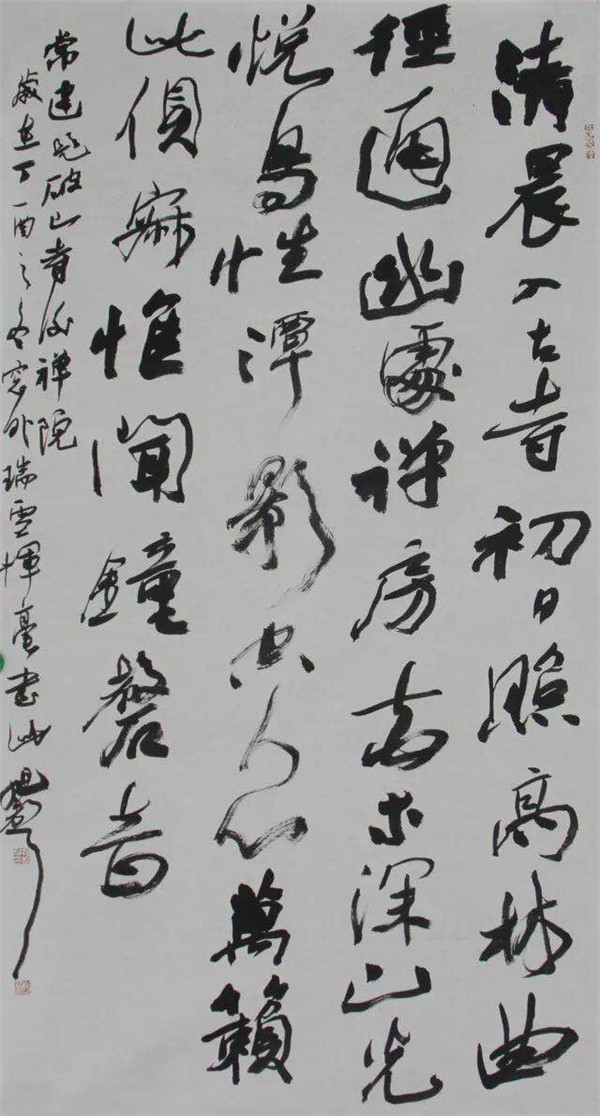 清晨入古寺初日照高林曲
徑通幽處禪房花木深山光
悅鳥性潭影空人心萬籟
此俱寂惟聞鐘磬音
常建題破山寺後禪院
歲在丁酉之冬窓外瑞雪惲毫書此